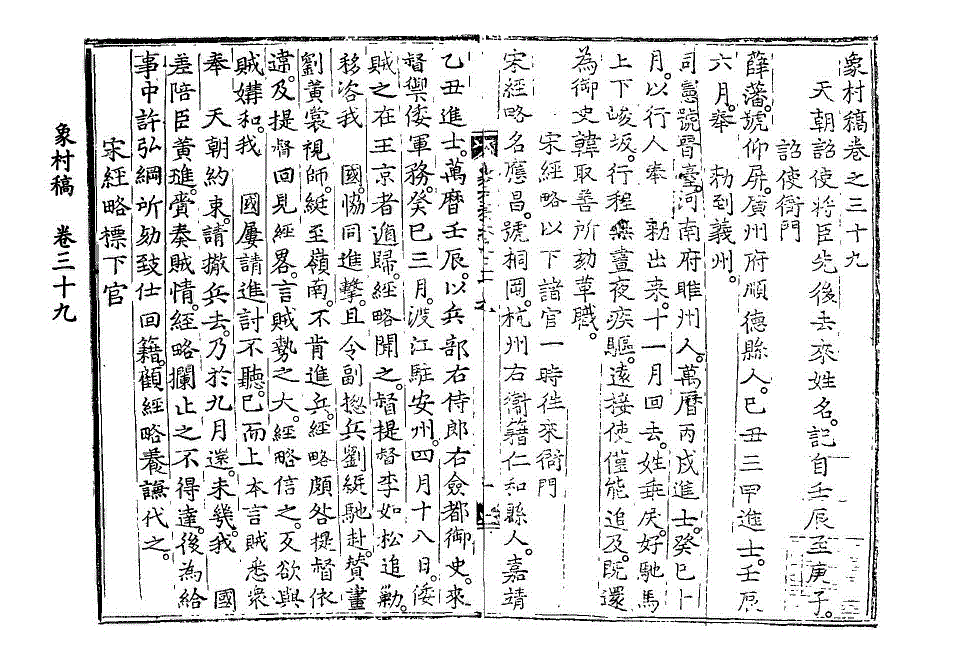 象村稿卷之三十九
天朝詔使將臣先後去來姓名。記自壬辰至庚子。
詔使衙門
薛藩。號仰屏。廣州府順德縣人。己丑三甲進士。壬辰
六月。奉 勑到義州。
司憲號晉臺。河南府睢州人。萬曆丙戌進士。癸巳十
月。以行人奉 勑出來。十一月回去。姓乖戾。好馳馬
上下峻坂。行程無晝夜疾驅。遠接使僅能追及。旣還
為御史韓取善所劾革職。
宋經略以下諸官一時徃來衙門
宋經略名應昌。號桐岡。杭州右衛籍仁和縣人。嘉靖
乙丑進士。萬曆壬辰。以兵部右侍郎右僉都御史。來
督禦倭軍務。癸巳三月。渡江駐安州。四月十八日。倭
賊之在王京者遁歸。經略聞之。督提督李如松追勦。
移咨我 國。恊同進擊。且令副摠兵劉綎馳赴。贊畫
劉黃裳視師。綎至嶺南。不肯進兵。經略頗咎提督依
違。及提督回見經畧。言賊勢之大。經略信之。反欲與
賊媾和。我 國屢請進討不聽。已而上本言賊悉衆
奉 天朝約束。請撤兵去。乃於九月還。未幾。我 國
差陪臣黃璡。賫奏賊情。經略攔止之不得達。後為給
事中許弘綱所劾致仕回籍。顧經略養謙代之。
宋經略標下官
象村稿 卷三十九